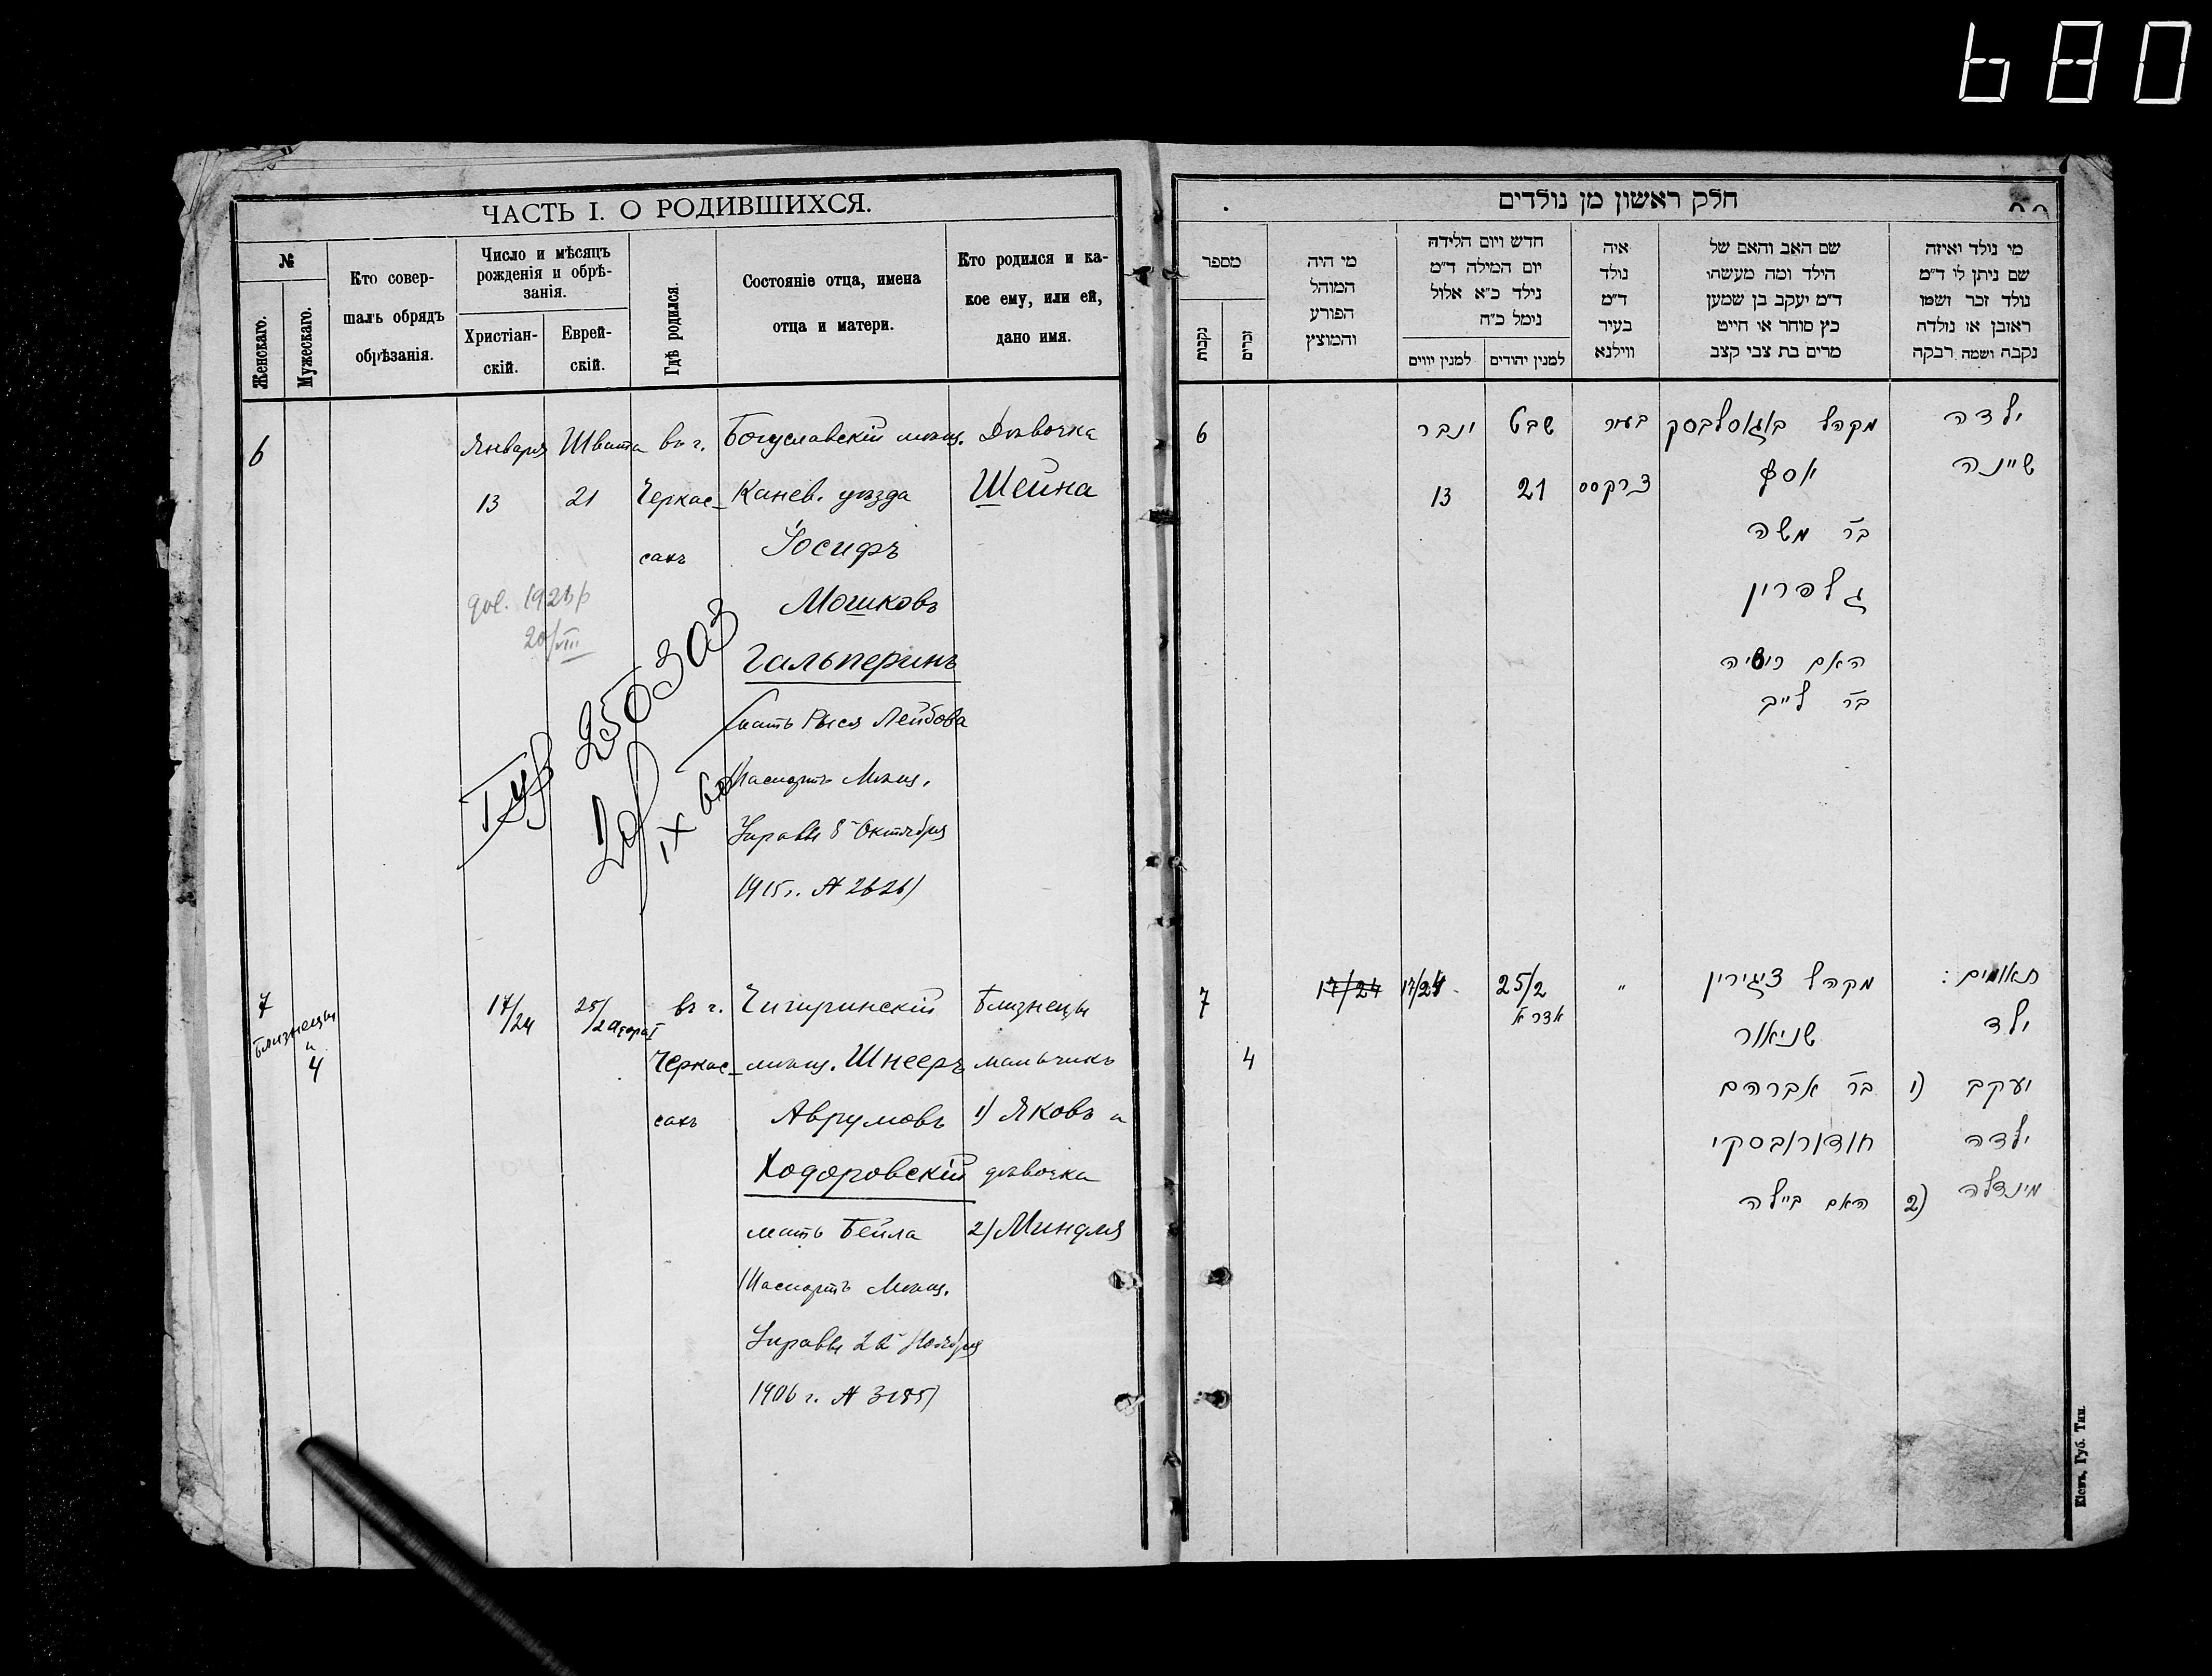 680
ЧАСТЬ I. О РОДИВШИХСЯ.
№
Женскаго.
Мужескаго.
Кто совер-
шалъ обрядъ
обрѣзанія.
Число и мѣсяцъ
рожденія и обрѣ-
занія.
Христіан-
скій.
Еврей-
скій.
Гдѣ родился.
Состояніе отца, имена
отца и матери.
Кто родился и ка-
кое ему, или ей,
дано имя.
6
Января Швата въ г. Богуславскій мѣщ. Дѣвочка
13 21 Черкас- Канев. уѣзда Шейна
сахъ Іосифъ
Мошковъ
Гальперинъ
мать Рыся Лейбова
Паспортъ Мѣщ.
Управы 8 Октября
1915 г. № 2626)
20/VIII
250303
IX 60
7 17/24 25/2 Адора I въ г. Чигиринскій Близнецы
Близнецы и 4 Черкас- мѣщ. Шнееръ мальчикъ
сахъ Аврумовъ 1) Яковъ и
Ходоровскій дѣвочка
мать Бейла 2) Миндля
(Паспортъ Мѣщ.
Управы 22 Ноября
1906 г. № 3185)
חלק ראשון מן נולדים
מספר
נקבות
זכרים
מי היה
המוהל
הפורע
והמוצץ
חדש ויום הלידה
יום המילה ד״מ
נילד כ״א אלול
נימל כ״ח
למנין יווים
למנין יהודים
איה
נולד
ד״מ
בעיר
ווילנא
שם האב והאם של
הילד ומה מעשהו
ד״מ יעקב בן שמען
כץ סוחר או חייט
מרים בת צבי קצב
מי נולד ואיזה
שם ניתן לי ד״מ
נולד זכר ושמו
ראובן או נולדה
נקבה ושמה רבקה
6 ינבר שבט בעיר מקהל באגוסלבסק ילדה
13 21 צרקסס יוסף שיינה
בר משה
גלפרין
האם ריסיה
בר לייב
7 17/24 17/24 25/2 " מקהל ציגירין תאומים:
אדר א
4 שניאור ילד
בר אברהם 1) יעקב
חודורובסקי ילדה
האם ביילה 2) מינדלה
Кіевъ, Губ. Тип.